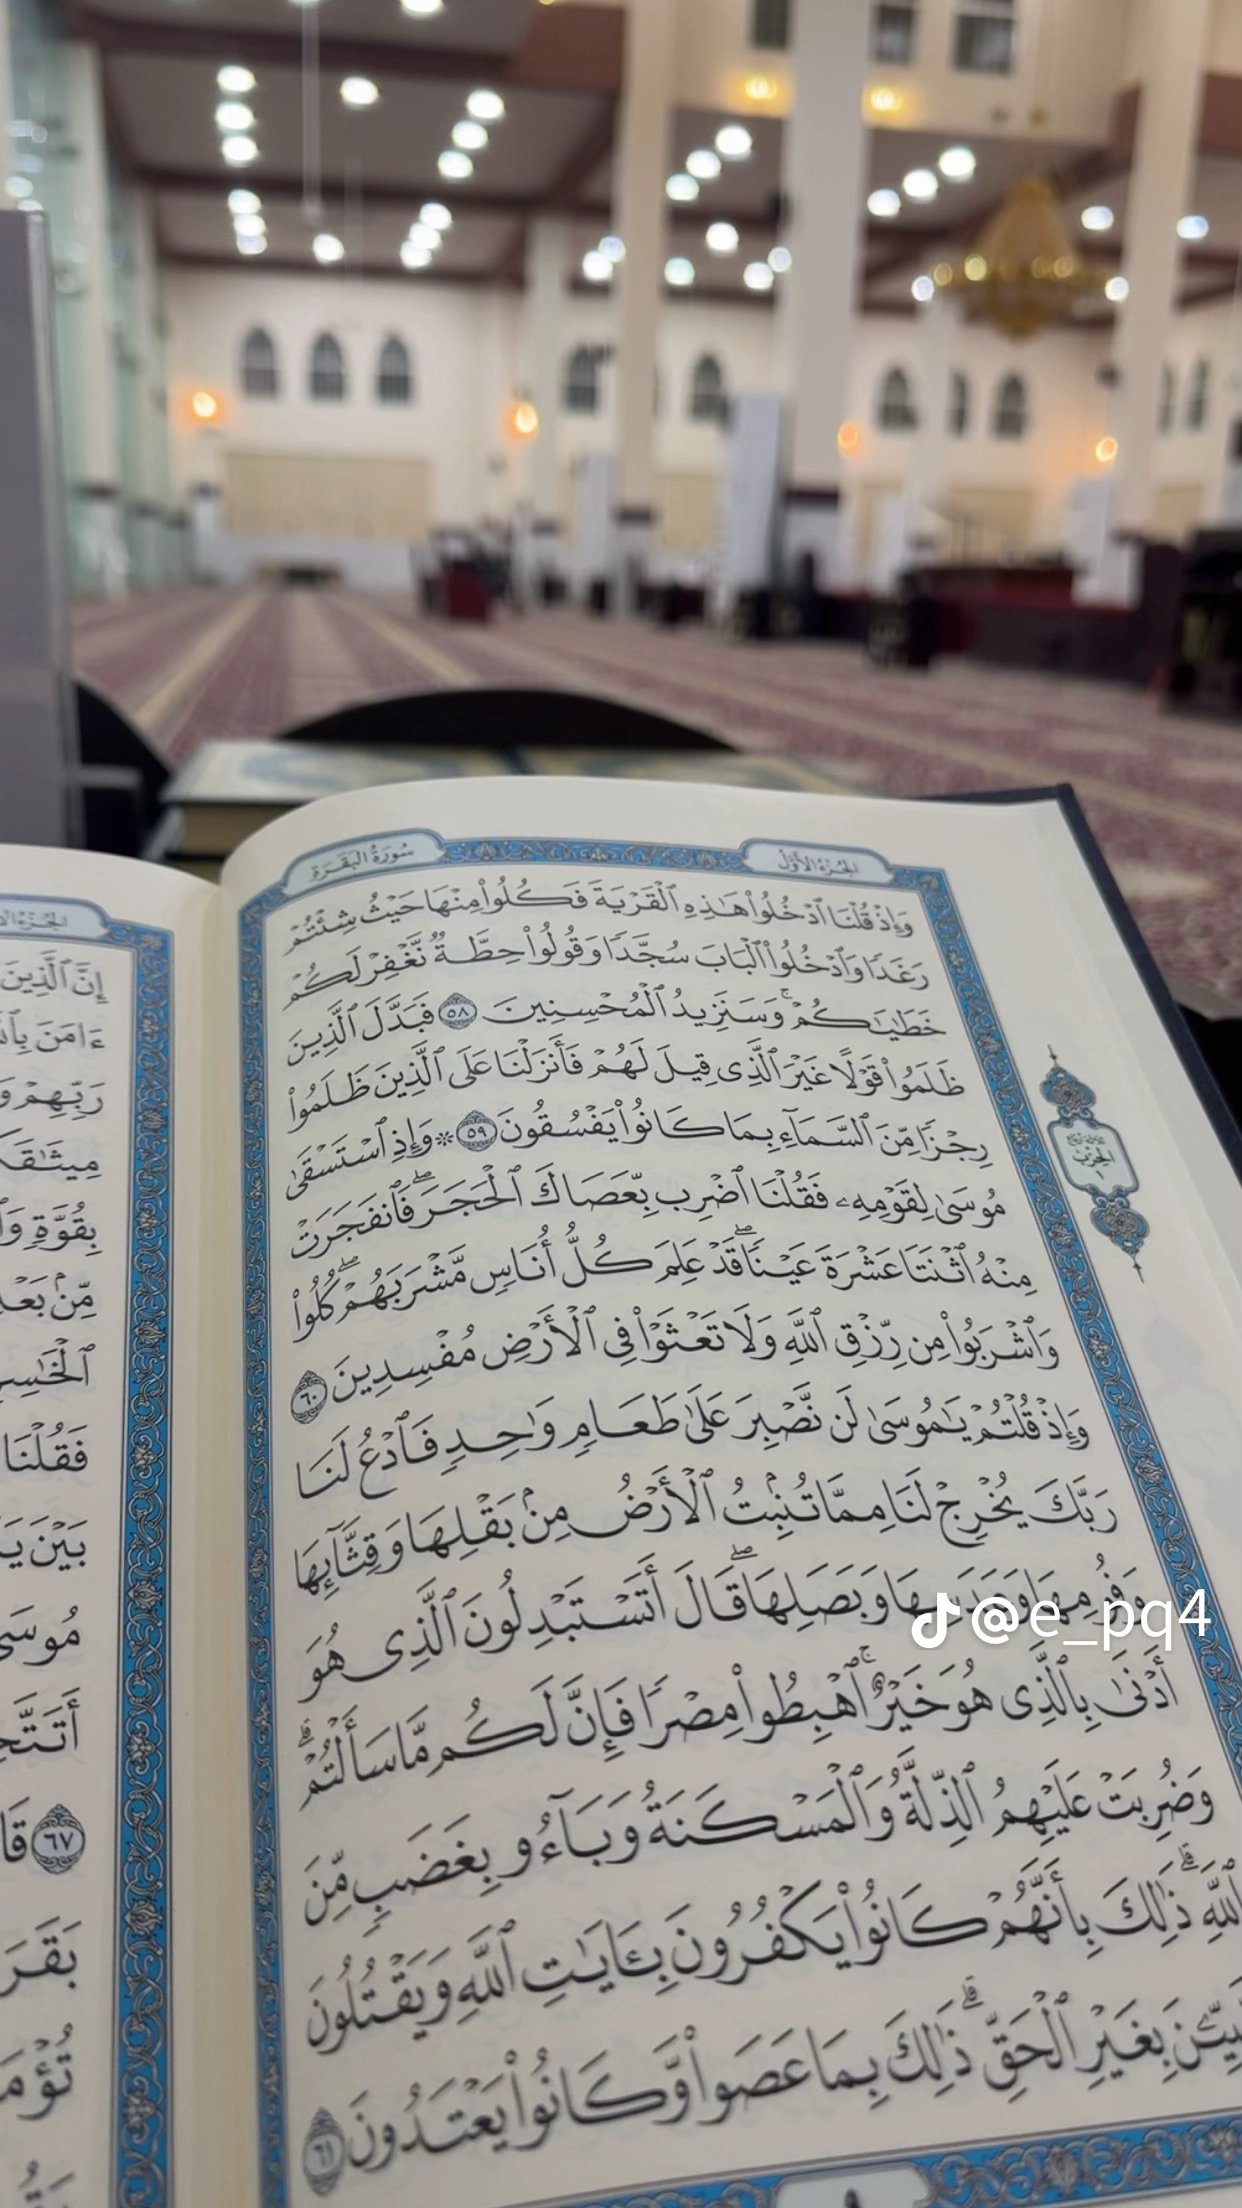 الجزء الأول
سورة البقرة
وَإِذْ قُلْنَا ٱدْخُلُوا۟ هَـٰذِهِ ٱلْقَرْيَةَ فَكُلُوا۟ مِنْهَا حَيْثُ شِئْتُمْ
رَغَدًا وَٱدْخُلُوا۟ ٱلْبَابَ سُجَّدًا وَقُولُوا۟ حِطَّةٌ نَّغْفِرْ لَكُمْ
خَطَـٰيَـٰكُمْ ۚ وَسَنَزِيدُ ٱلْمُحْسِنِينَ ٥٨ فَبَدَّلَ ٱلَّذِينَ
ظَلَمُوا۟ قَوْلًا غَيْرَ ٱلَّذِى قِيلَ لَهُمْ فَأَنزَلْنَا عَلَى ٱلَّذِينَ ظَلَمُوا۟
رِجْزًا مِّنَ ٱلسَّمَآءِ بِمَا كَانُوا۟ يَفْسُقُونَ ٥٩ * وَإِذِ ٱسْتَسْقَىٰ
مُوسَىٰ لِقَوْمِهِۦ فَقُلْنَا ٱضْرِب بِّعَصَاكَ ٱلْحَجَرَ ۖ فَٱنفَجَرَتْ
مِنْهُ ٱثْنَتَا عَشْرَةَ عَيْنًا ۖ قَدْ عَلِمَ كُلُّ أُنَاسٍ مَّشْرَبَهُمْ ۖ كُلُوا۟
وَٱشْرَبُوا۟ مِن رِّزْقِ ٱللَّهِ وَلَا تَعْثَوْا۟ فِى ٱلْأَرْضِ مُفْسِدِينَ ٦٠
وَإِذْ قُلْتُمْ يَـٰمُوسَىٰ لَن نَّصْبِرَ عَلَىٰ طَعَامٍ وَٰحِدٍ فَٱدْعُ لَنَا
رَبَّكَ يُخْرِجْ لَنَا مِمَّا تُنۢبِتُ ٱلْأَرْضُ مِنۢ بَقْلِهَا وَقِثَّآئِهَا
وَفُومِهَا وَعَدَسِهَا وَبَصَلِهَا ۖ قَالَ أَتَسْتَبْدِلُونَ ٱلَّذِى هُوَ
أَدْنَىٰ بِٱلَّذِى هُوَ خَيْرٌ ۚ ٱهْبِطُوا۟ مِصْرًا فَإِنَّ لَكُم مَّا سَأَلْتُمْ ۗ
وَضُرِبَتْ عَلَيْهِمُ ٱلذِّلَّةُ وَٱلْمَسْكَنَةُ وَبَآءُو بِغَضَبٍ مِّنَ
ٱللَّهِ ۗ ذَٰلِكَ بِأَنَّهُمْ كَانُوا۟ يَكْفُرُونَ بِـَٔايَـٰتِ ٱللَّهِ وَيَقْتُلُونَ
بِغَيْرِ ٱلْحَقِّ ۗ ذَٰلِكَ بِمَا عَصَوا۟ وَّكَانُوا۟ يَعْتَدُونَ ٦١
٩
الحزب
١
إِنَّ ٱلَّذِينَ
ءَامَنَ
رَبِّهِمْ
بِقُوَّةٍ
مِّنۢ
فَقُلْنَا
بَيْنَ
٦٧
@e_pq4